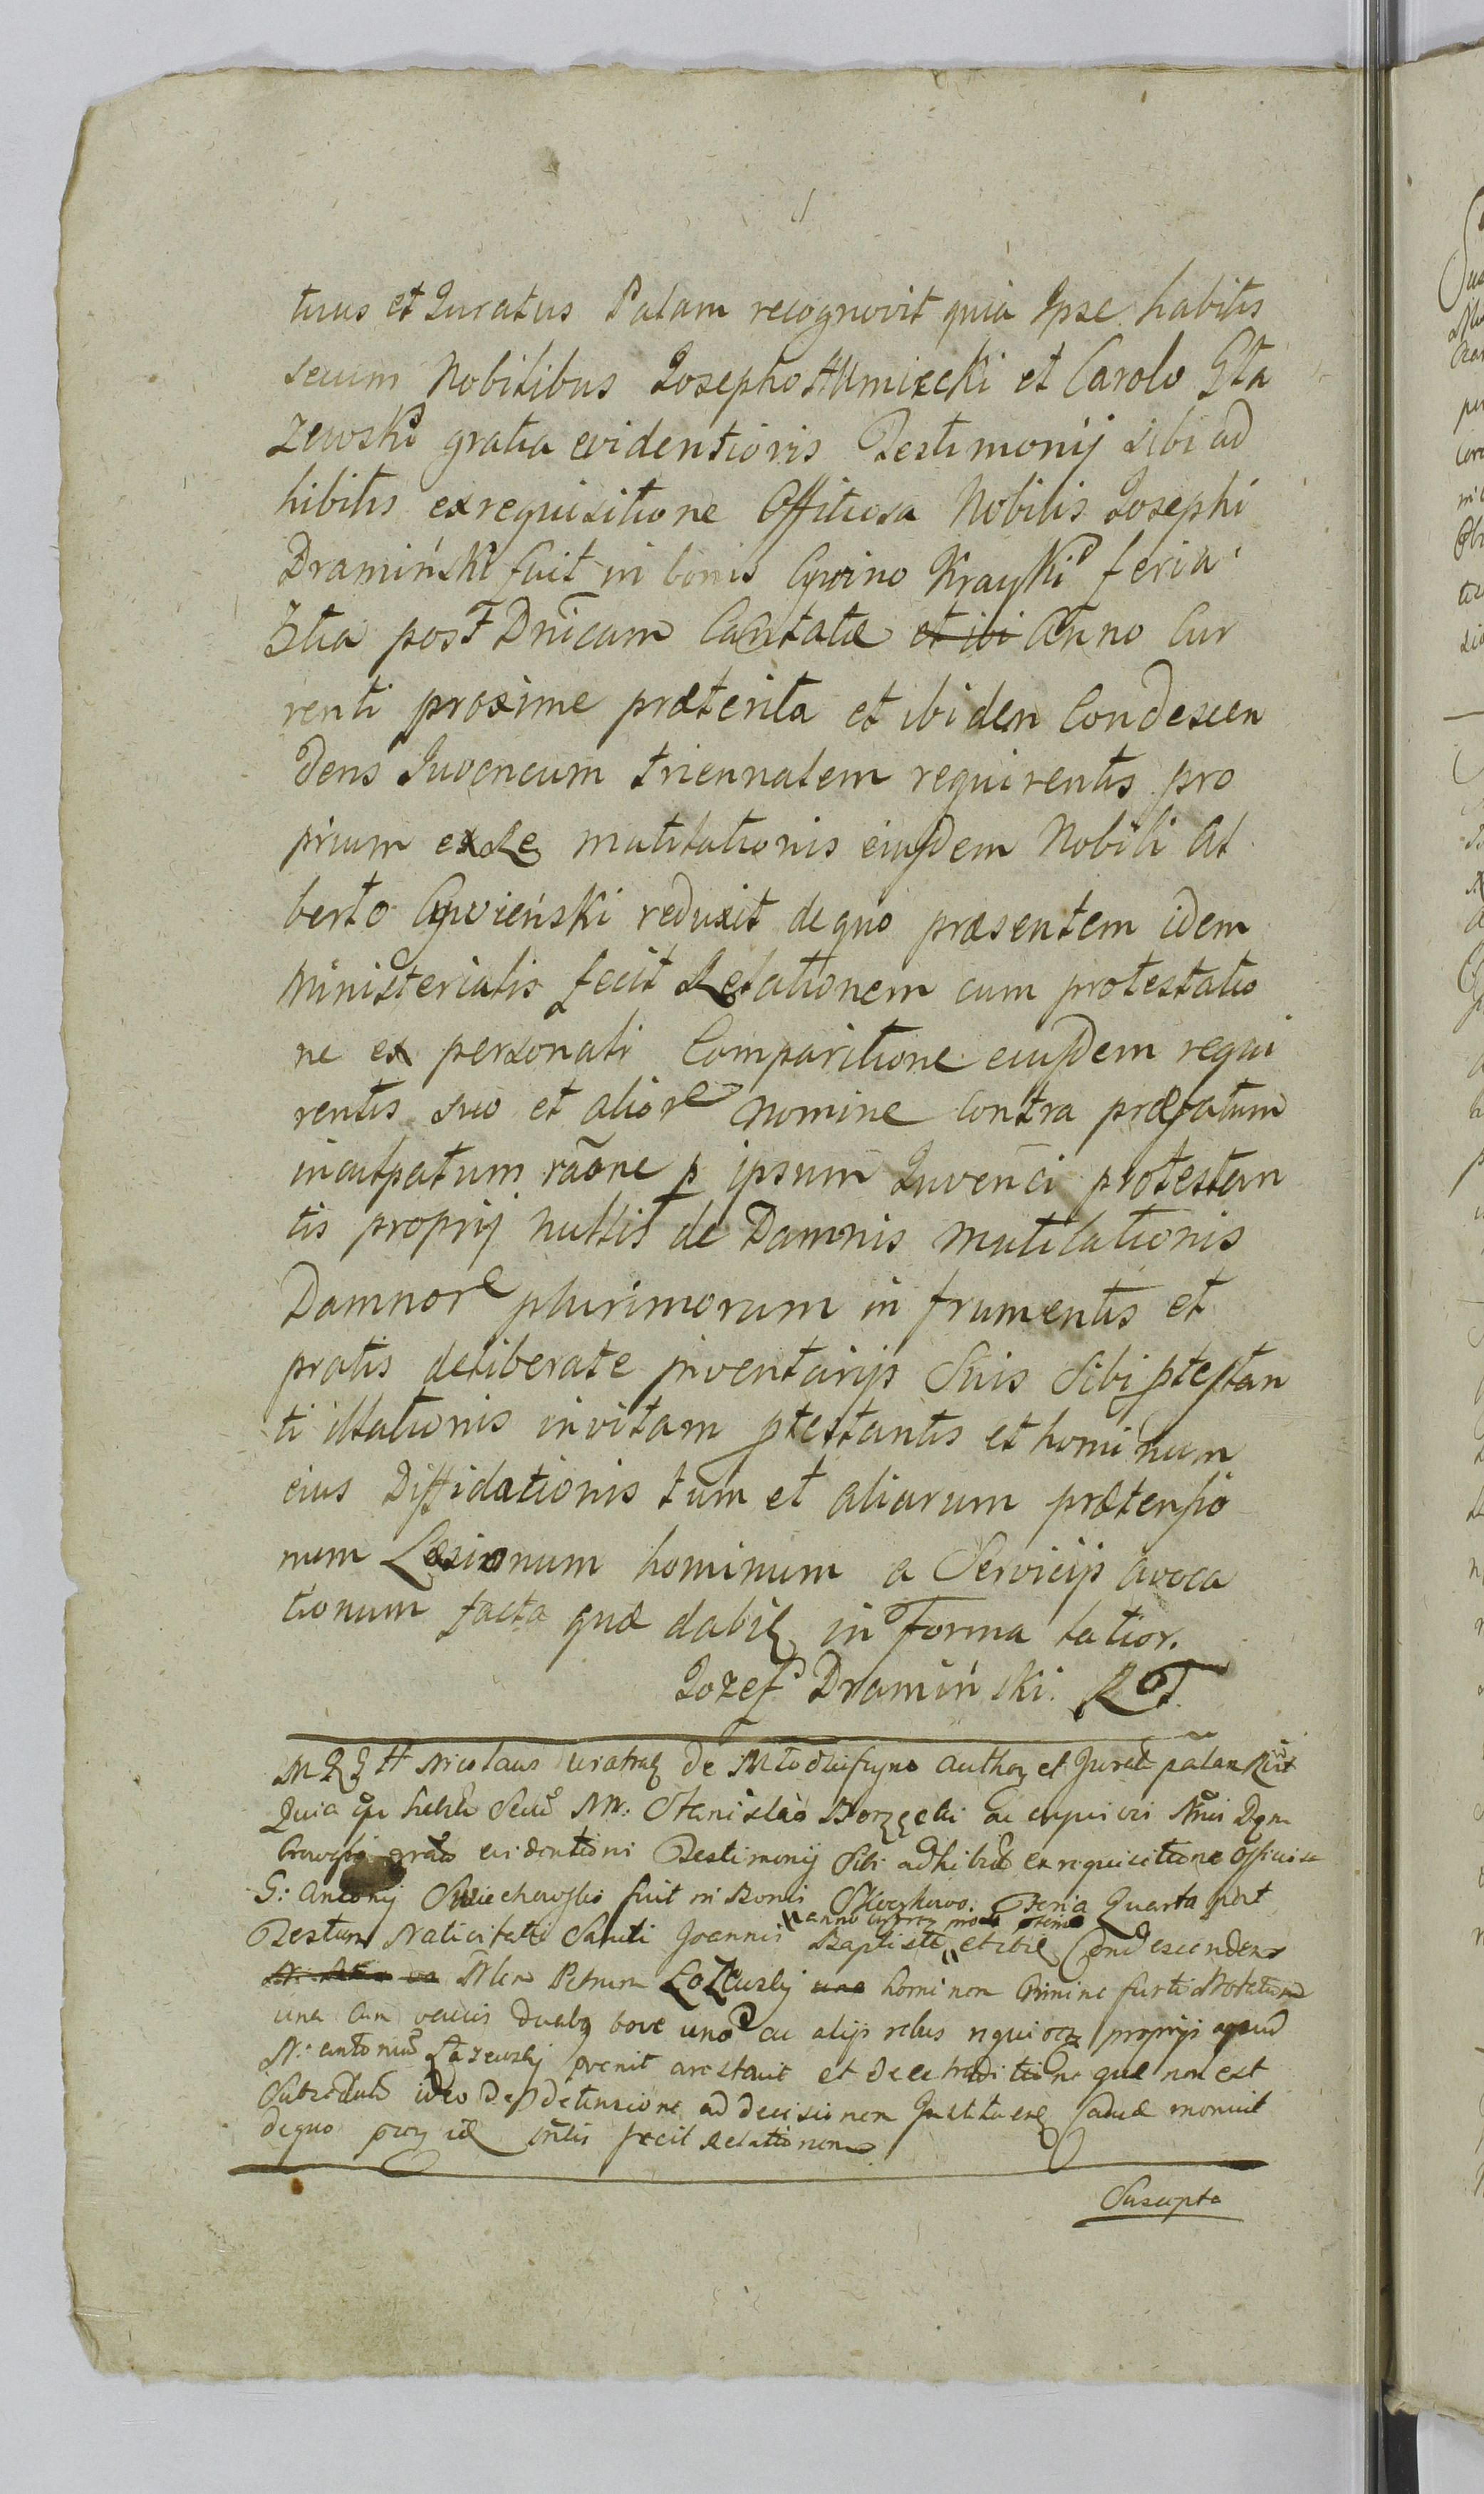 tius et Juratus Palam recognovit quia Ipse habitis
secum Nobilibus Josepho Humięcki et Carolo Gła
zewski gratia evidentioris Testimonij sibi ad
hibitis ex requisitione Offitiosa Nobilis Josephi
Dramiński fuit in bonis Cywino Krayki feria
3tia post Dnicam Cantatæ et ibi Anno Cur
renti proxime præterita et ibidem Condescen
dens Juvencum triennalem requirentis pro
prium exde mutilationis eiusdem Nobili Al
berto Cywieński reduxit de quo præsentem idem
Ministerialis fecit Relationem cum protestatio
ne ex personali Comparitione eiusdem requi
rentis suo et alior nomine contra præfatum
inculpatum raone p ipsum Juvenci protestan
tis proprij nullis de Damnis mutilationis
Damnor plurimorum in frumentis et
pratis deliberate inventarijs Suis Sibi ptestan
ti illationis in vitam ptestantis et hominum
eius Diffidationis tum et aliarum prætensio
num Læsionum hominum a Servicijs avoca
tionum facta quæ dabit in Forma latior.
Jozef Dramiński.
Nicolaus de authen et Jurat palam
Quia Secu Stanislao ac
evidentioris Testimonij Sibi adhibit ex requisitione Officiosa
G: Antonij fuit in Bonis Feria Quarta post
Festum Nativitatis Sancti Joannis Baptistæ et ibi Condescendens
anno
Petrum Łazewski una hominem Crimine furti Notatum
una cum vaccis duabus bove uno ac alijs rebus proprijs apud
N: Antonium Łazewski arestavit et de extraditione quæ non est
ideo de detensione ad decisionem monuit
de quo fecit Relationem
Suscepta